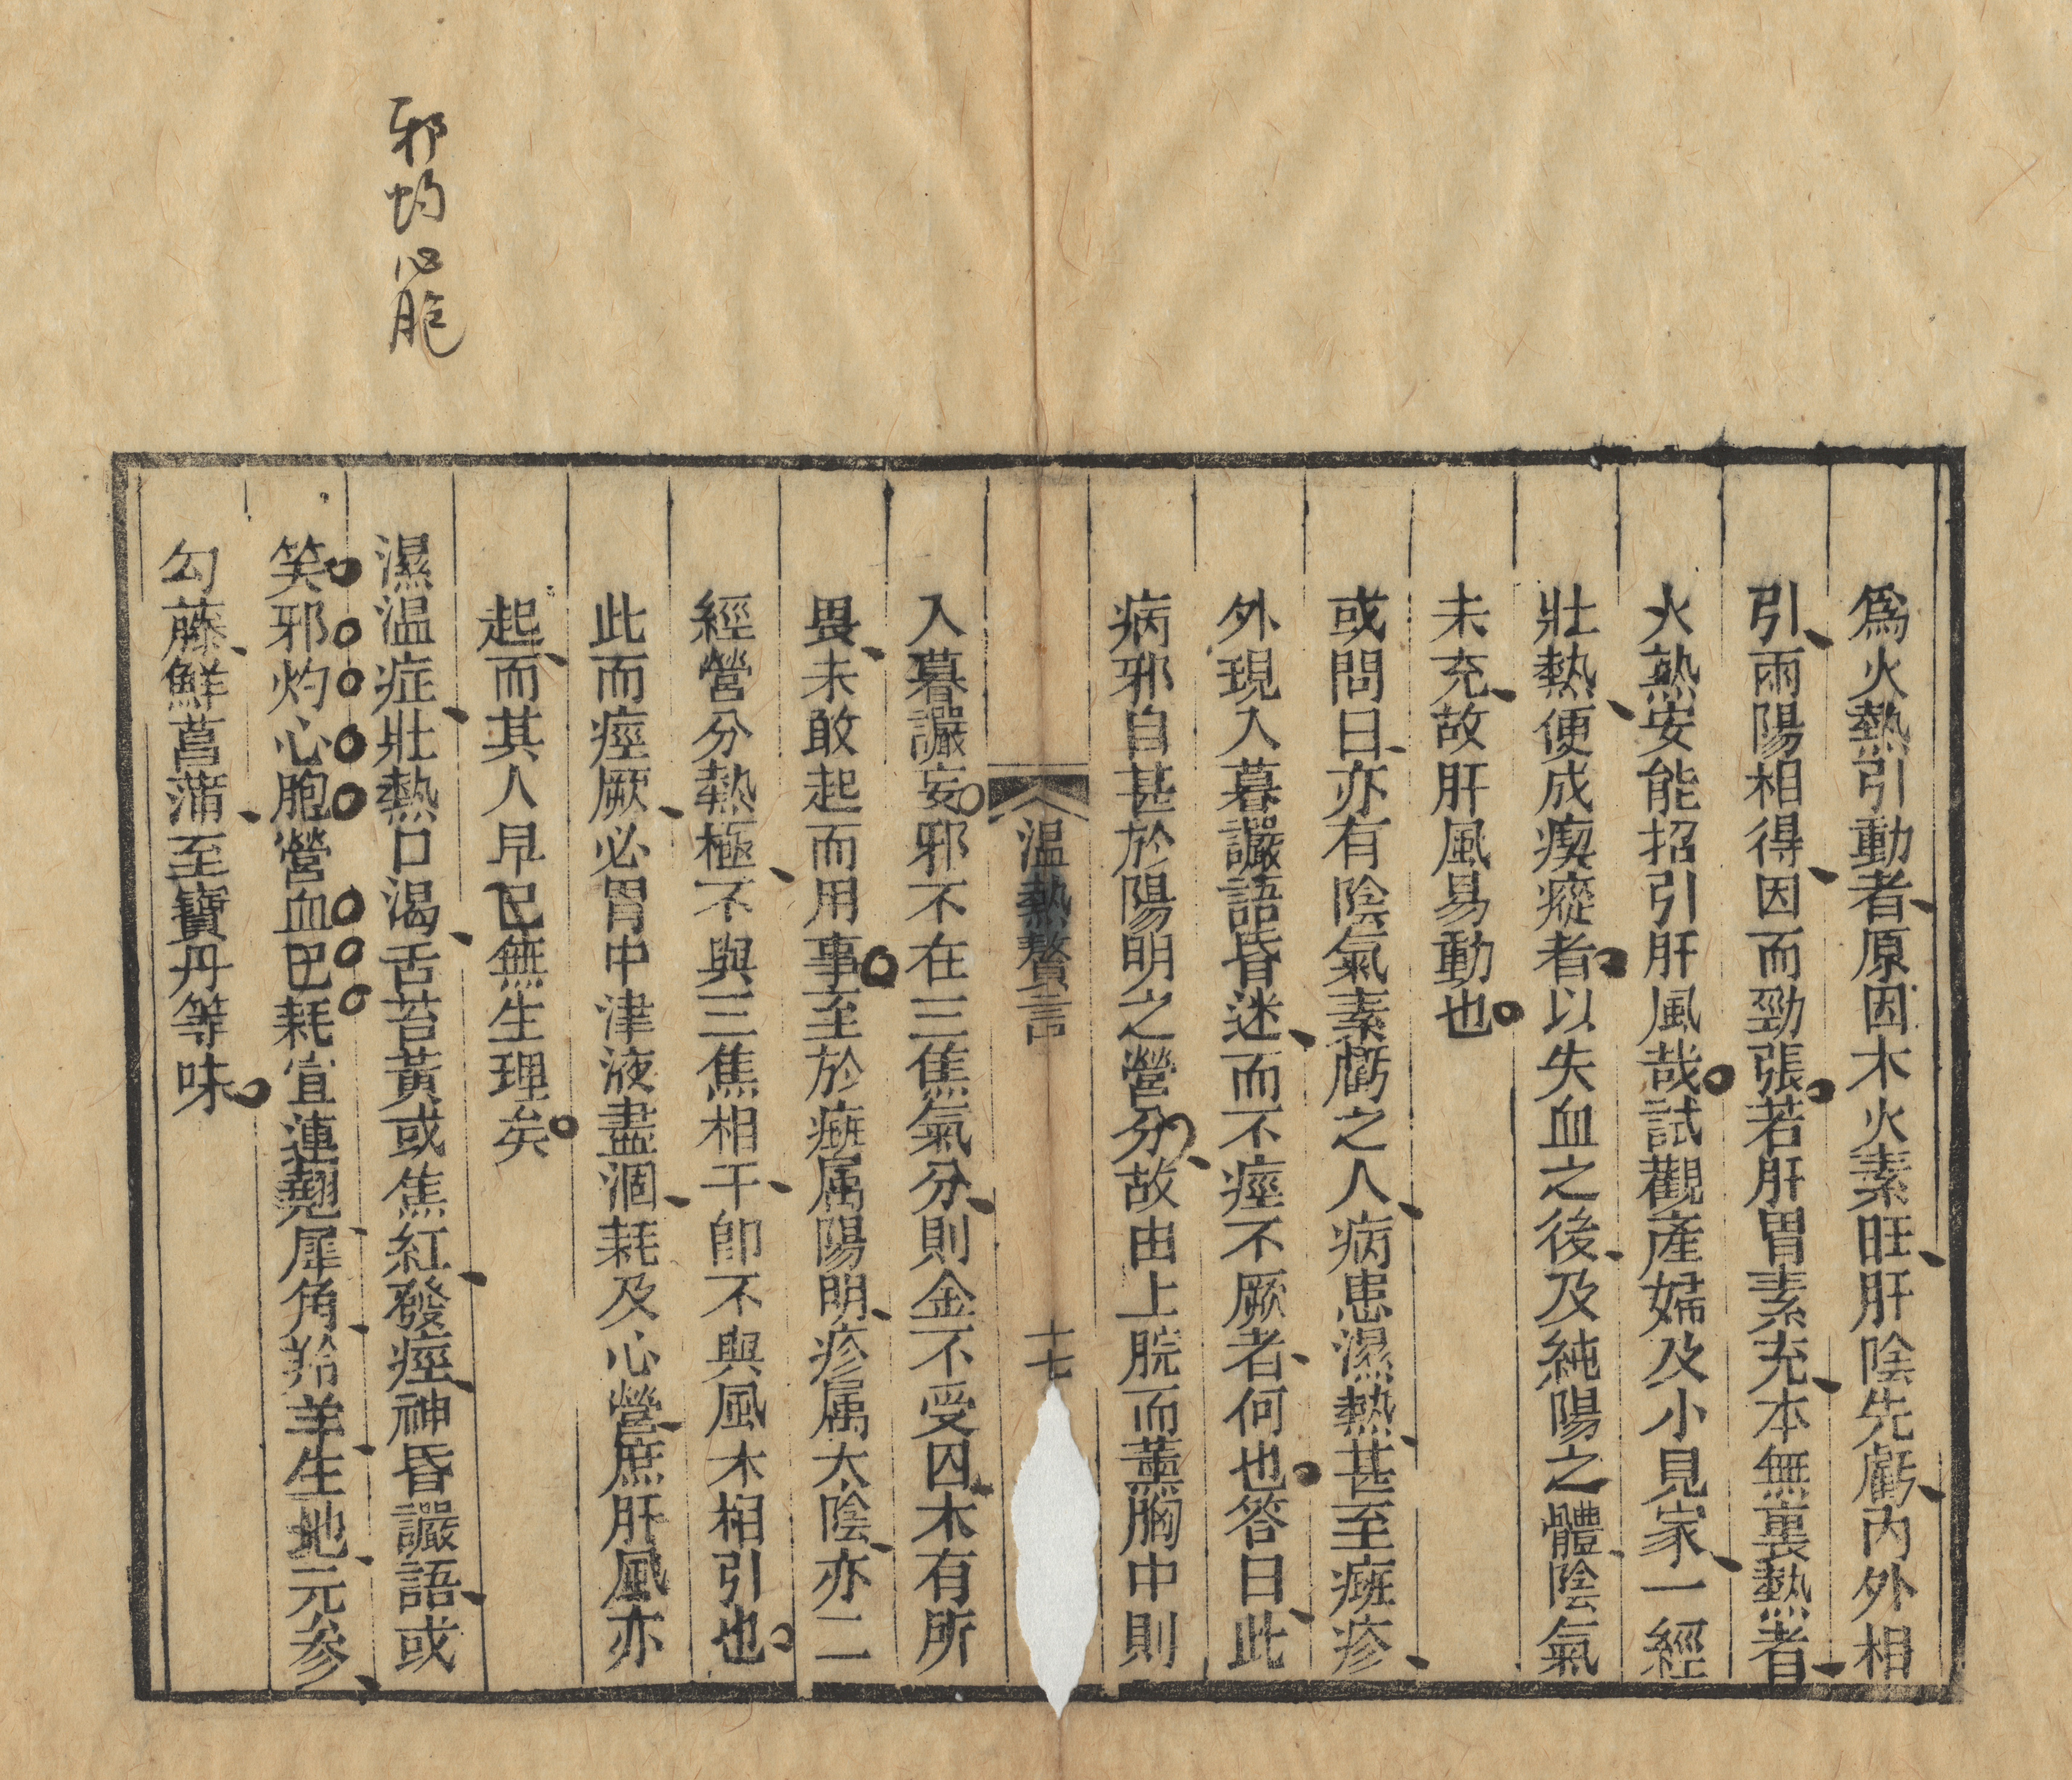 邪灼心胞
爲火熱引動者原因木火素旺肝陰先虧內外相
引兩陽相得因而勁張若肝胃素充本無裏熱者
火熟安能招引肝風哉試觀產婦及小見家一經
壯熱便成瘈瘲者以失血之後及純陽之體陰氣
未充故肝風易動也
或問曰亦有陰氣素虧之人病患濕熱甚至癍疹
外現入暮讝語昏迷而不痙不厥者何也答曰此
病邪自甚於陽明之營分故由上脘而薰胸中則
溫熱贅言
十七
入暮讝妄邪不在三焦氣分則金不受囚木有所
畏未敢起而用事至於癍属陽明疹属大陰亦二
經營分熱極不與三焦相干卽不與風木相引也
此而痙厥必胃中津液盡涸耗及心營庶肝風亦
起而其人早已無生理矣
濕温症壯熱口渴舌苔黃或焦紅發痙神昏讝語或
笑邪灼心胞營血巳耗宜連翹犀角羚羊生地元参
勾藤鮮菖蒲至寶丹等味